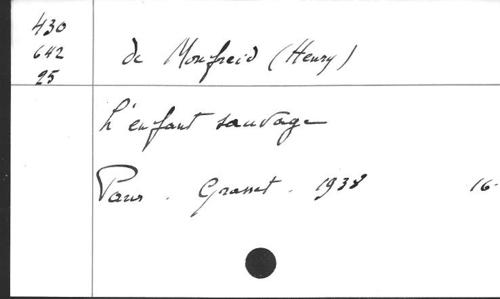 430
642
25
de Monfreid (Henry)
L'enfant sauvage
Paris. Grasset. 1938 16-